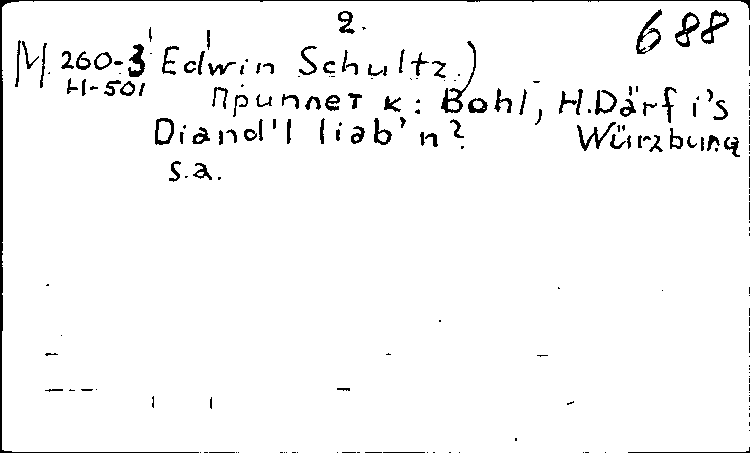 2.
688
М 260-3 Edwin Schultz.)
H-501
Приплет к: Bohl, H. Därf i's
Diand'l liab'n? Würzburg
s.a.